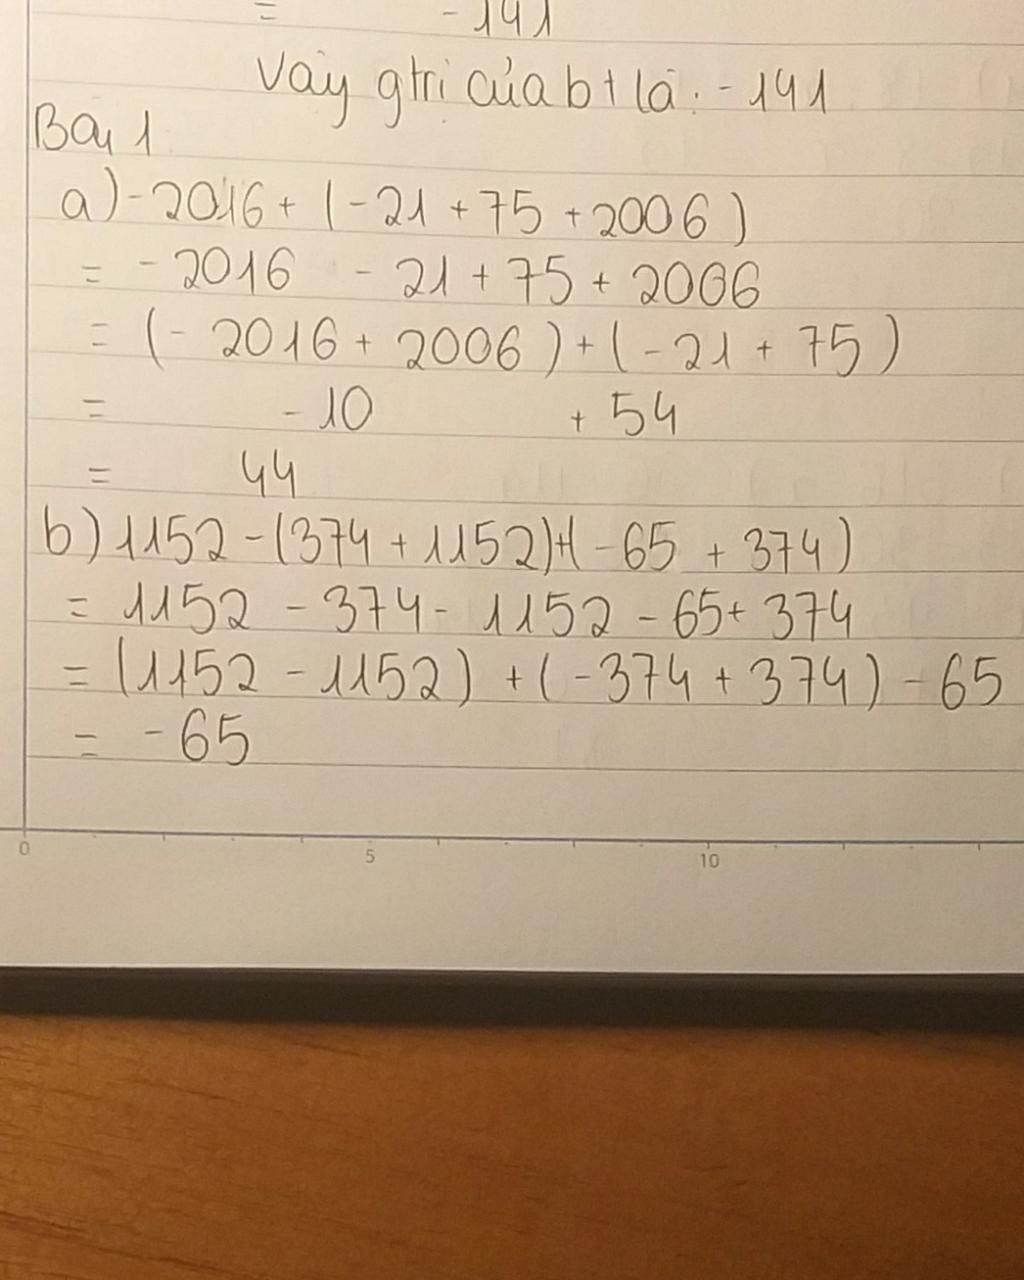 = -141
Vậy gtri của bt là: -141
Bài 1
a) -2016 + (-21 + 75 + 2006)
= -2016 - 21 + 75 + 2006
= (-2016 + 2006) + (-21 + 75)
= -10 + 54
= 44
b) 1152 - (374 + 1152) + (-65 + 374)
= 1152 - 374 - 1152 - 65 + 374
= (1152 - 1152) + (-374 + 374) - 65
= -65
0 5 10